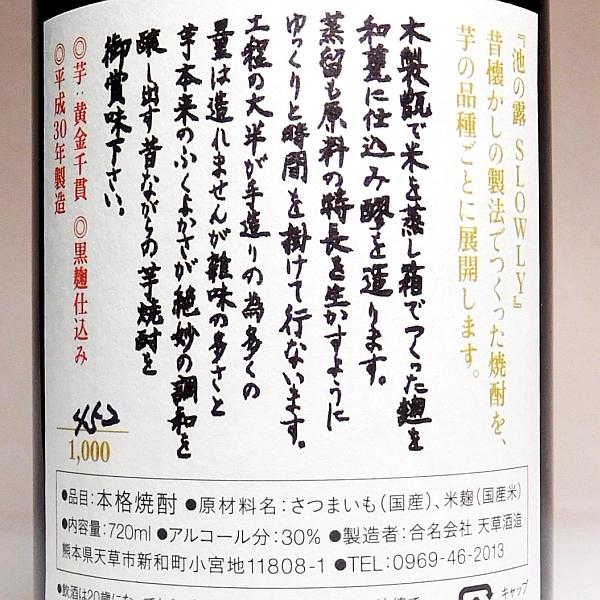 『池の露 SLOWLY』
昔懐かしの製法でつくった焼酎を、
芋の品種ごとに展開します。
木製甑で米を蒸し箱でつくった麹を
和甕に仕込み醪を造ります。
蒸留も原料の特長を生かすように
ゆっくりと時間を掛けて行ないます。
工程の大半が手造りの為多くの
量は造れませんが雑味の多さと
芋本来のふくよかさが絶妙の調和を
醸し出す昔ながらの芋焼酎を
御賞味下さい。
◎芋:黄金千貫 ◎黒麹仕込み
◎平成30年製造
452
1,000
●品目:本格焼酎 ●原材料名:さつまいも(国産)、米麹(国産米)
●内容量:720ml ●アルコール分:30% ●製造者:合名会社 天草酒造
熊本県天草市新和町小宮地11808-1 ●TEL:0969-46-2013
●飲酒は20歳になってから
キャップ